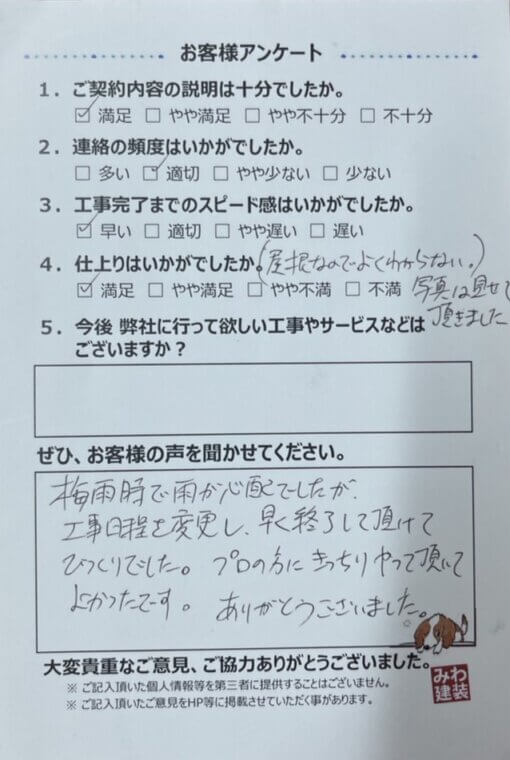 お客様アンケート
１．ご契約内容の説明は十分でしたか。
☑ 満足 □ やや満足 □ やや不十分 □ 不十分
２．連絡の頻度はいかがでしたか。
□ 多い ☑ 適切 □ やや少ない □ 少ない
３．工事完了までのスピード感はいかがでしたか。
☑ 早い □ 適切 □ やや遅い □ 遅い
４．仕上りはいかがでしたか。(屋根なのでよくわからない。)
☑ 満足 □ やや満足 □ やや不満 □ 不満 写真は見せて
頂きました
５．今後 弊社に行って欲しい工事やサービスなどは
ございますか？
ぜひ、お客様の声を聞かせてください。
梅雨時で雨が心配でしたが、
工事日程を変更し、早く終了して頂けて
びっくりでした。プロの方にきっちりやって頂いて
よかったです。ありがとうございました。
大変貴重なご意見、ご協力ありがとうございました。
※ ご記入頂いた個人情報等を第三者に提供することはございません。
※ ご記入頂いたご意見をHP等に掲載させていただく事があります。
みわ
建装